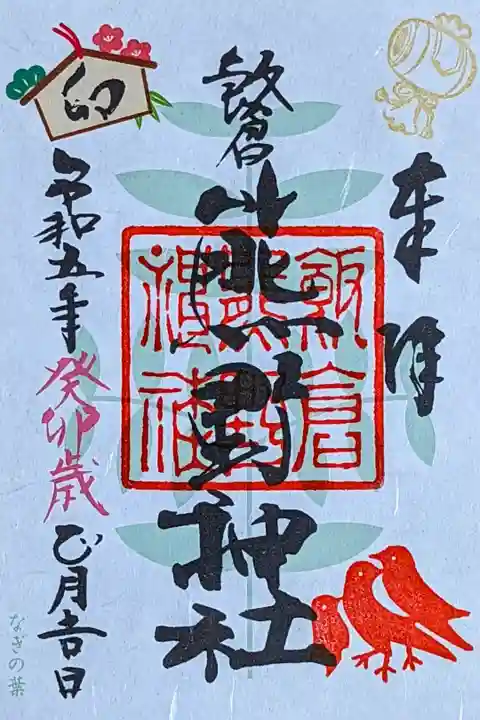 奉拝
飯倉
熊野神社
飯倉
熊野
神社
卯
令和五年 癸卯歳 正月吉日
なぎの葉